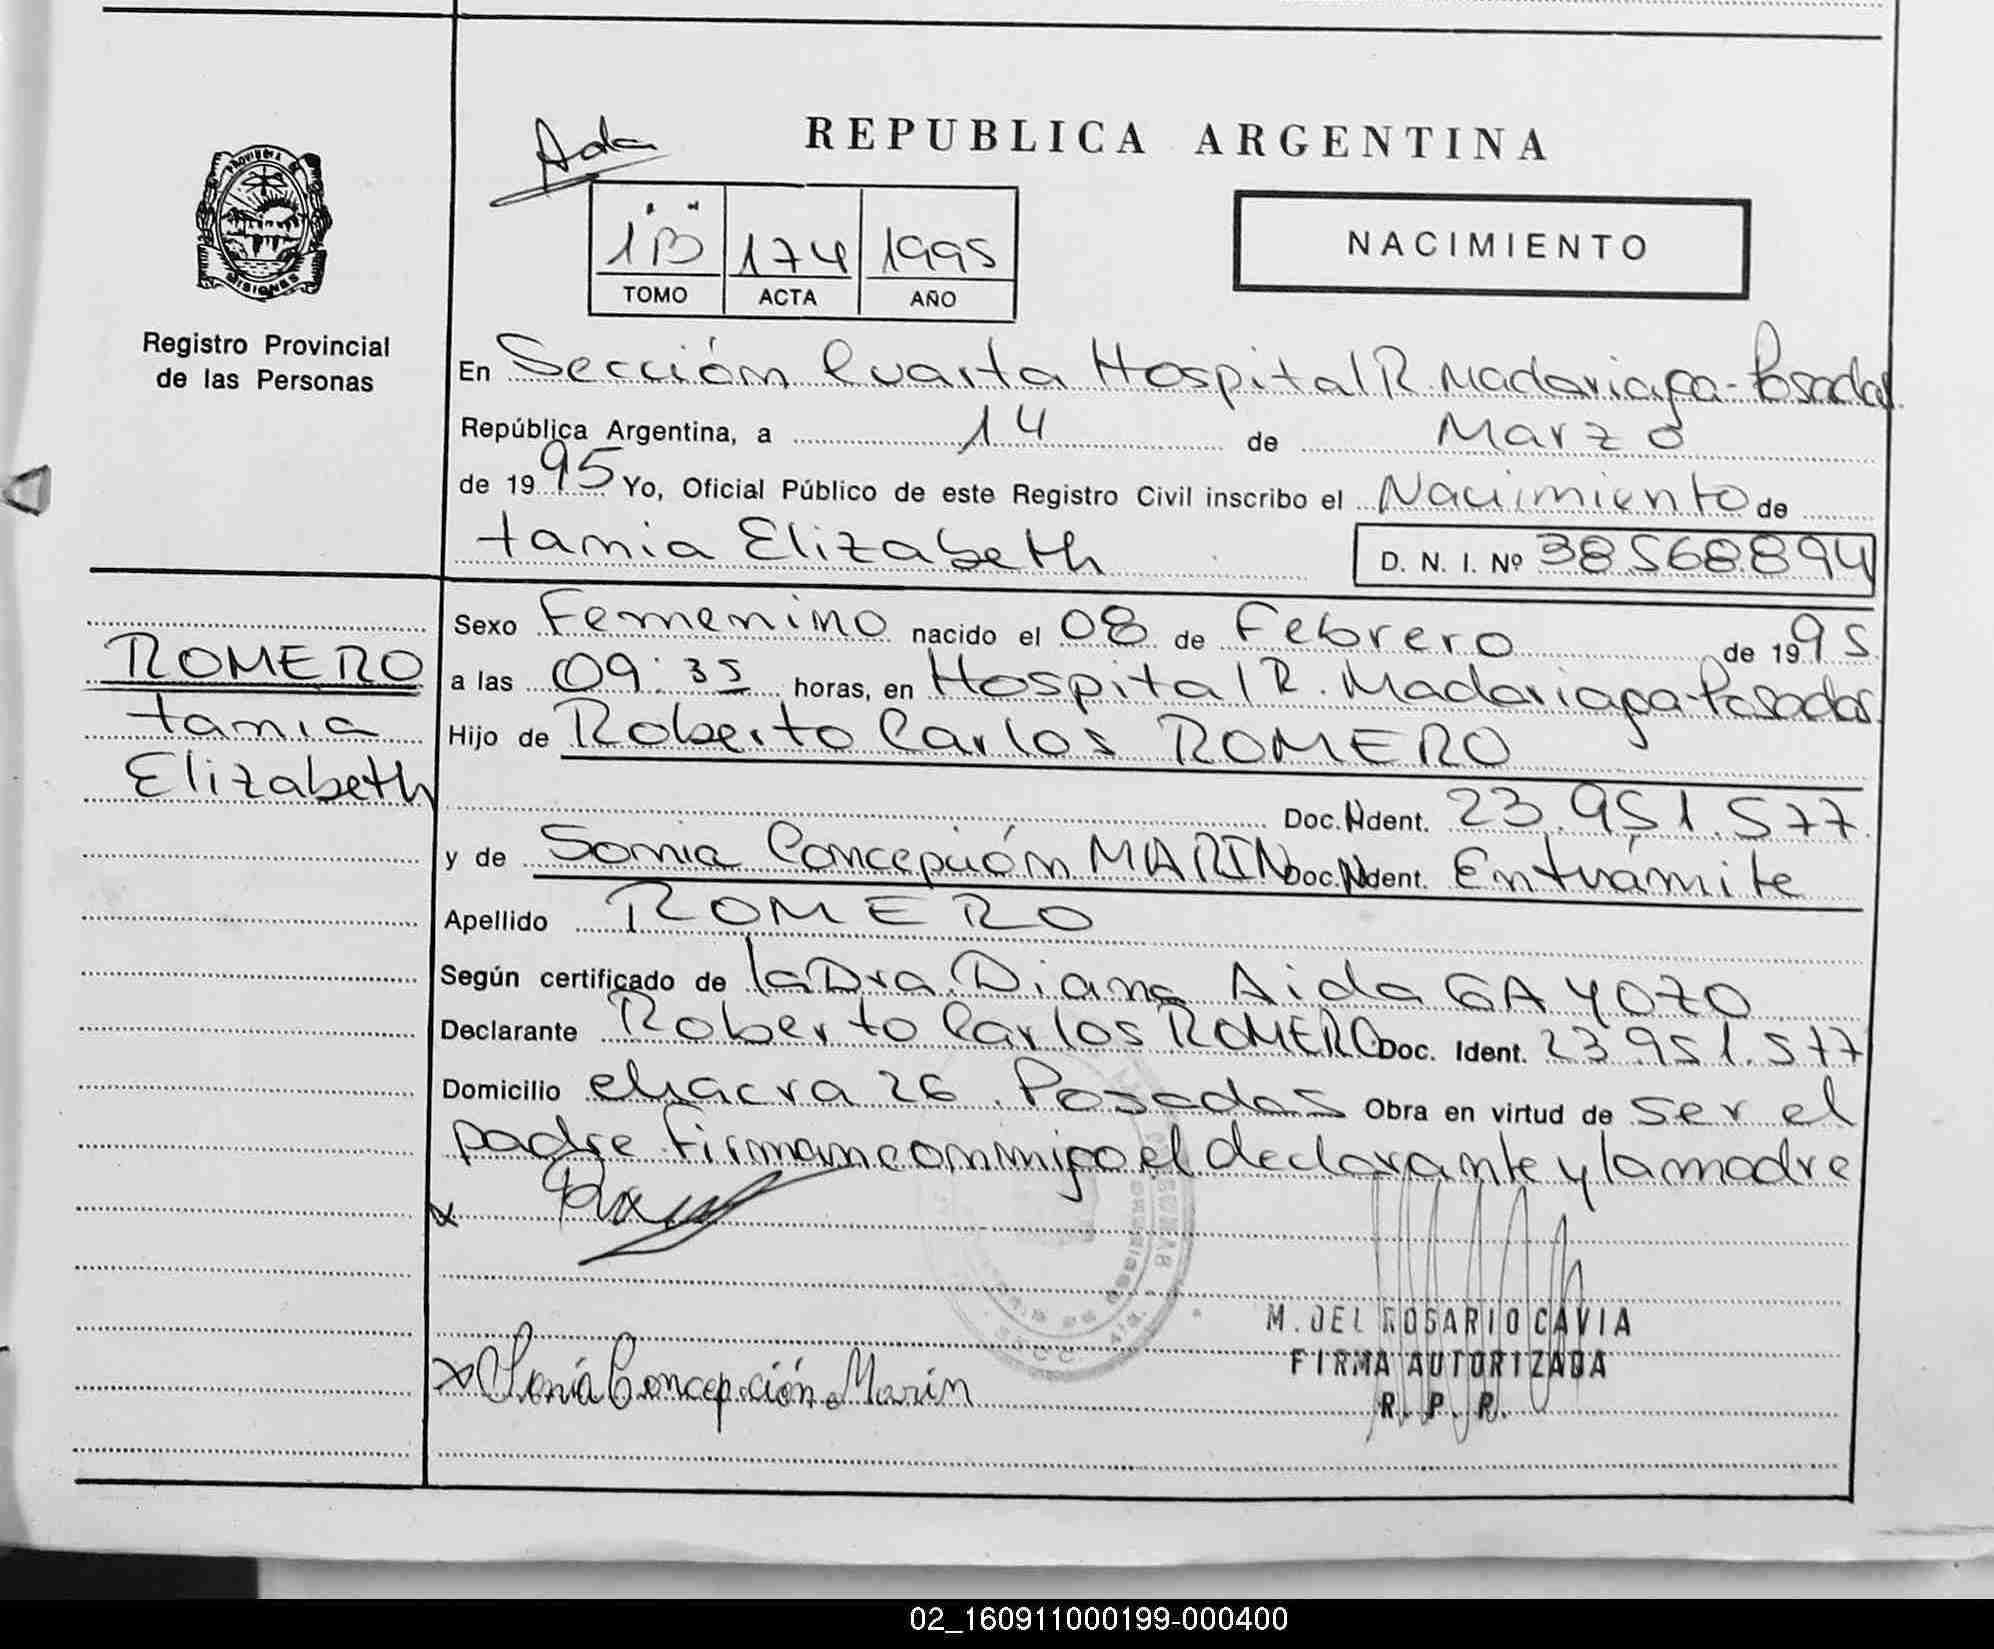 Ada
REPUBLICA ARGENTINA
1B 174 1995
TOMO ACTA AÑO
NACIMIENTO
PROVINCIA DE
MISIONES
Registro Provincial
de las Personas
En Sección Cuarta Hospital R. Madariaga - Posadas
República Argentina, a 14 de Marzo
de 1995 Yo, Oficial Público de este Registro Civil inscribo el Nacimiento de
tania Elizabeth D. N. I. Nº 38568894
ROMERO
tania
Elizabeth
Sexo Femenino nacido el 08 de Febrero de 1995
a las 09:35 horas, en Hospital R. Madariaga-Posadas
Hijo de Roberto Carlos ROMERO
Doc. Ident. 23.951.577
y de Sonia Concepción MARIN Doc. Ident. En trámite
Apellido ROMERO
Según certificado de la Dra. Diana Aida GAYOZO
Declarante Roberto Carlos ROMERO Doc. Ident. 23.951.577
Domicilio chacra 26. Posadas Obra en virtud de ser el
padre. Firman conmigo el declarante y la madre
x
M. DEL ROSARIO CAVIA
FIRMA AUTORIZADA
R. P. P.
x Sonia Concepción Marin
02_160911000199-000400